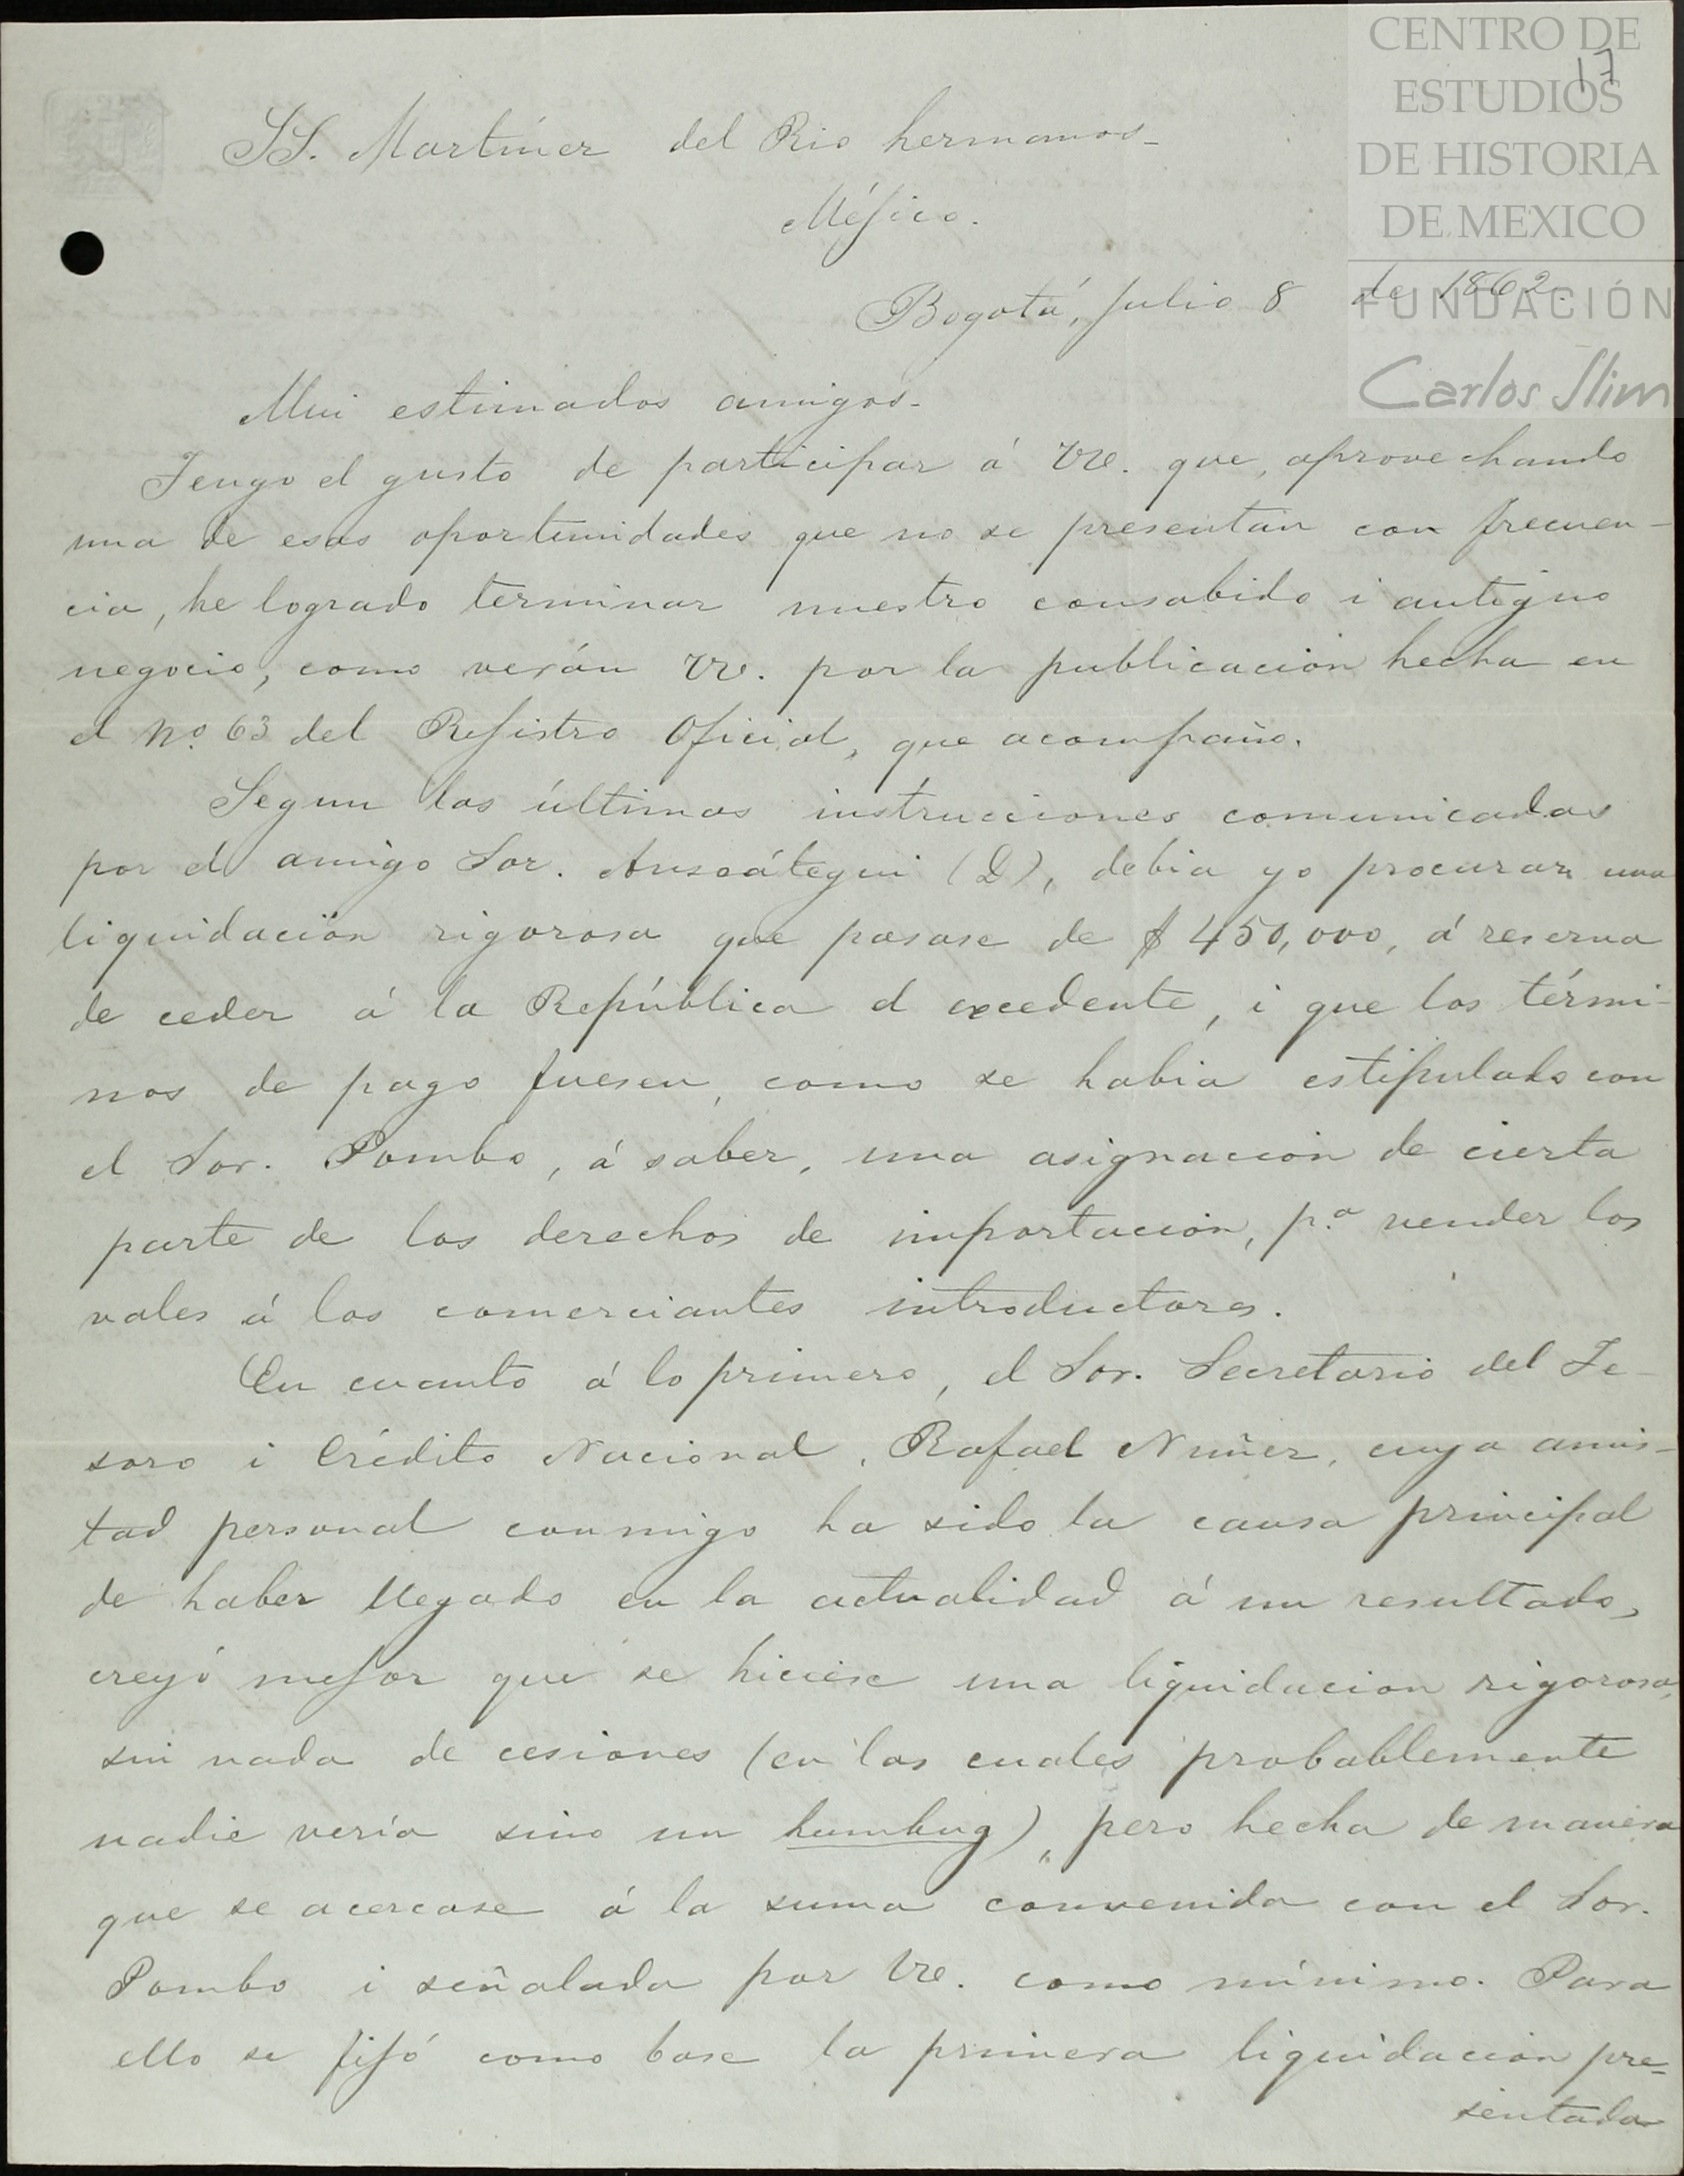 CENTRO DE
ESTUDIOS
DE HISTORIA
DE MEXICO
FUNDACIÓN
Carlos Slim
17
SS. Martínez del Rio hermanos-
Méjico.
Bogotá, Julio 8 de 1862.
Mui estimados amigos-
Tengo el gusto de participar á VV. que, aprovechando
una de esas oportunidades que no se presentan con frecuen-
cia, he logrado terminar nuestro consabido i antiguo
negocio, como verán VV. por la publicacion hecha en
el No. 63 del Rejistro Oficial, que acompaño.
Segun las últimas instrucciones comunicadas
por el amigo Sor. Ansoátegui (D), debia yo procurar una
liquidacion rigorosa que pasase de $ 450,000, á reserva
de ceder á la República el excedente, i que los térmi-
nos de pago fuesen, como se habia estipulado con
el Sor. Pombo, á saber, una asignacion de cierta
parte de los derechos de importacion, p.a vender los
vales á los comerciantes introductores.
En cuanto á lo primero, el Sor. Secretario del Te-
soro i Crédito Nacional, Rafael Nuñez, cuya amis-
tad personal conmigo ha sido la causa principal
de haber llegado en la actualidad á un resultado,
creyó mejor que se hiciese una liquidacion rigorosa,
sin nada de cesiones (en las cuales probablemente
nadie vería sino un humbug), pero hecha de manera
que se acercase á la suma convenida con el Sor.
Pombo i señalada por VV. como mínimo. Para
ello se fijó como base la primera liquidacion pre-
sentada